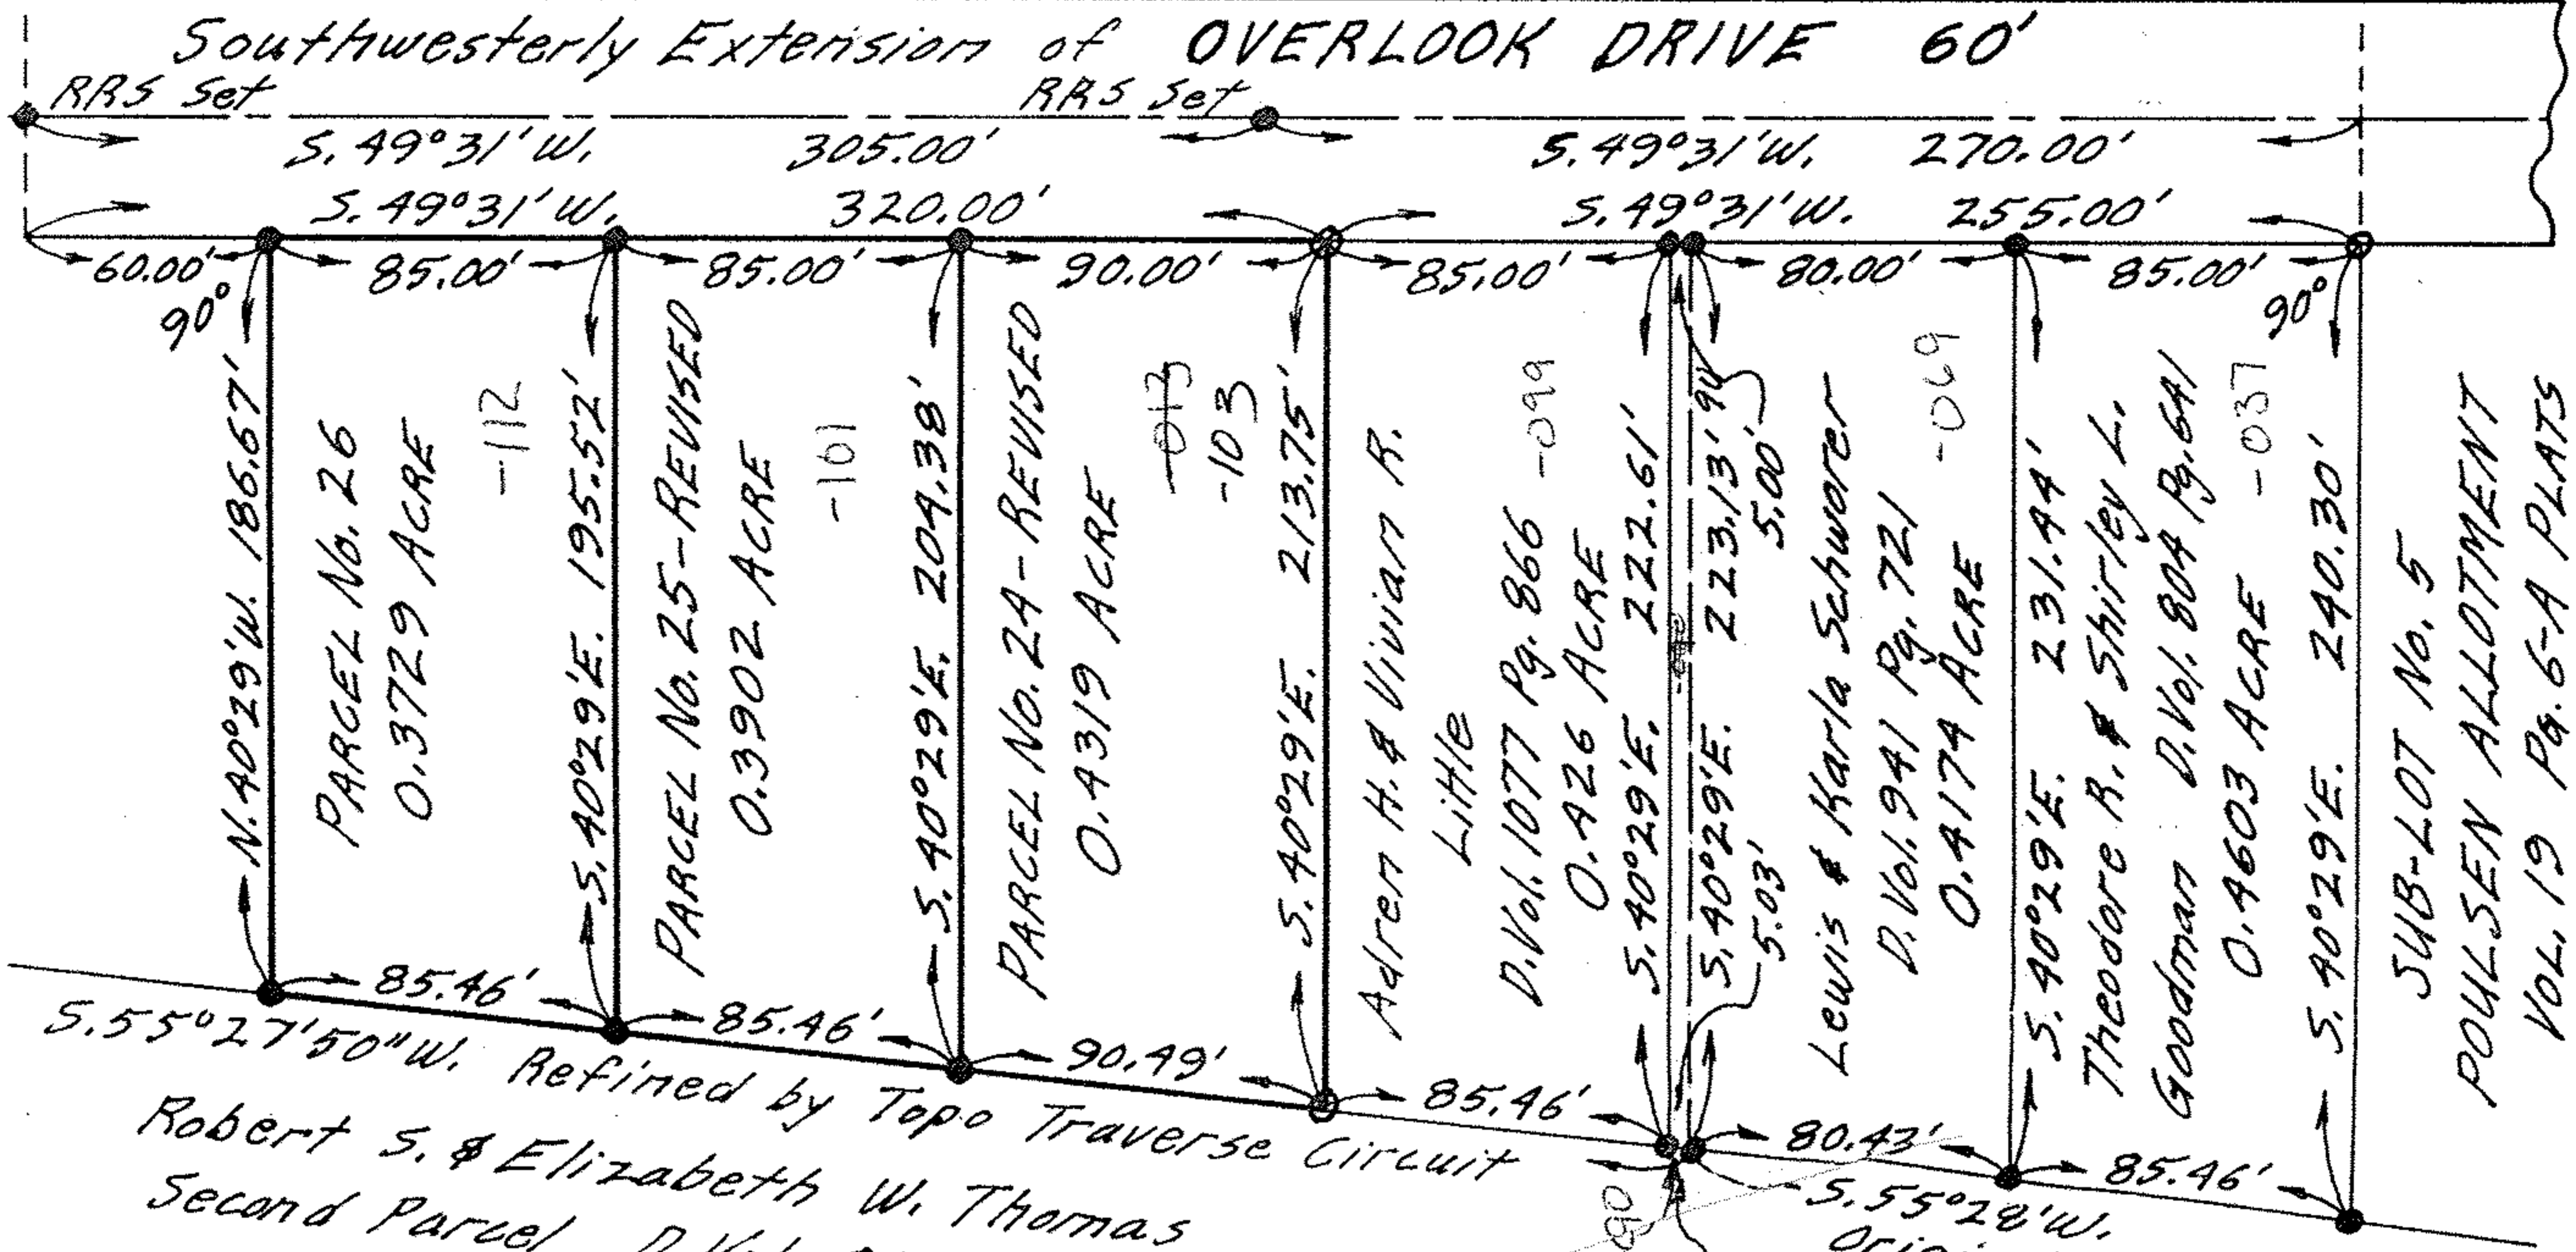 Southwesterly Extension of OVERLOOK DRIVE 60'
RRS Set
RRS Set
S. 49°31' W. 305.00'
S. 49°31' W. 270.00'
S. 49°31' W. 320.00'
S. 49°31' W. 255.00'
60.00'
85.00'
85.00'
90.00'
85.00'
80.00'
85.00'
90°
90°
N. 40°29' W. 186.67'
PARCEL No. 26
0.3729 ACRE
-112
S. 40°29' E. 195.52'
PARCEL No. 25-REVISED
0.3902 ACRE
-101
S. 40°29' E. 204.38'
PARCEL No. 24-REVISED
0.4319 ACRE
-013
-103
S. 40°29' E. 213.75'
Adren H. & Vivian R.
Little
D. Vol. 1077 Pg. 866
-099
0.426 ACRE
S. 40°29' E. 222.61'
S. 40°29' E. 223.13'
5.00'
5.03'
Lewis & Karla Schworer
D. Vol. 941 Pg. 721
-069
0.4174 ACRE
S. 40°29' E. 231.44'
Theodore R. & Shirley L.
Goodman D. Vol. 804 Pg. 641
0.4603 ACRE
-037
S. 40°29' E. 240.30'
SUB-LOT No. 5
POULSEN ALLOTMENT
VOL. 19 Pg. 6-A PLATS
85.46'
85.46'
90.49'
85.46'
80.43'
85.46'
S. 55°27'50" W. Refined by Topo Traverse Circuit
S. 55°28' W.
Robert S. & Elizabeth W. Thomas
Second Parcel